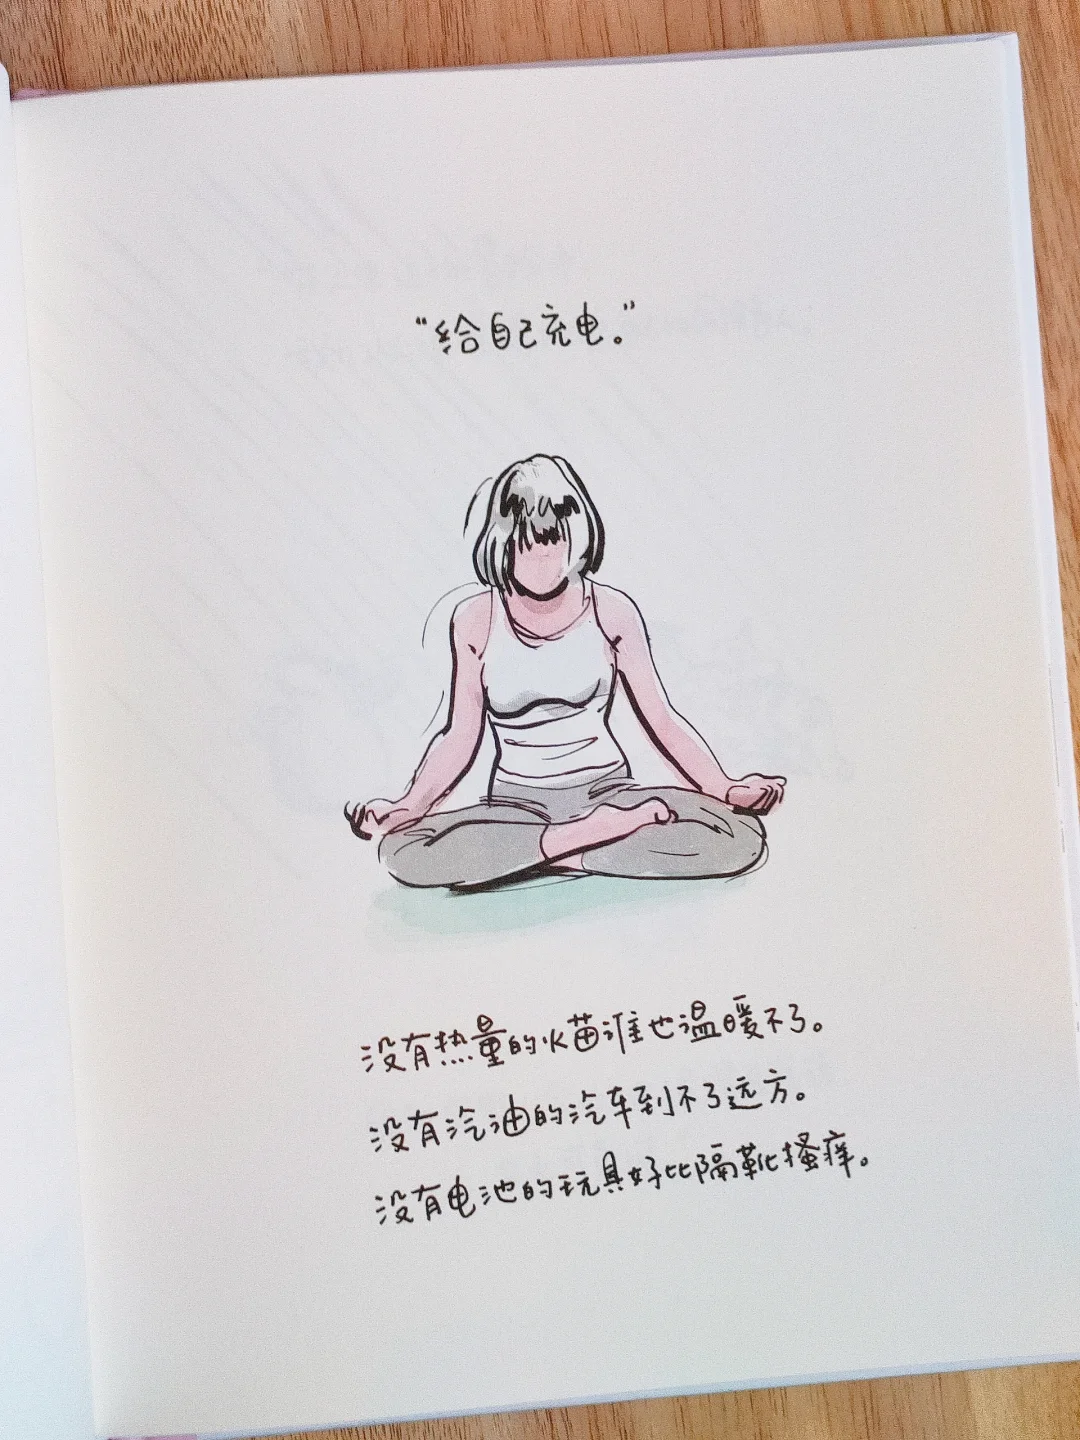 “给自己充电。”
没有热量的火苗谁也温暖不了。
没有汽油的汽车到不了远方。
没有电池的玩具好比隔靴搔痒。